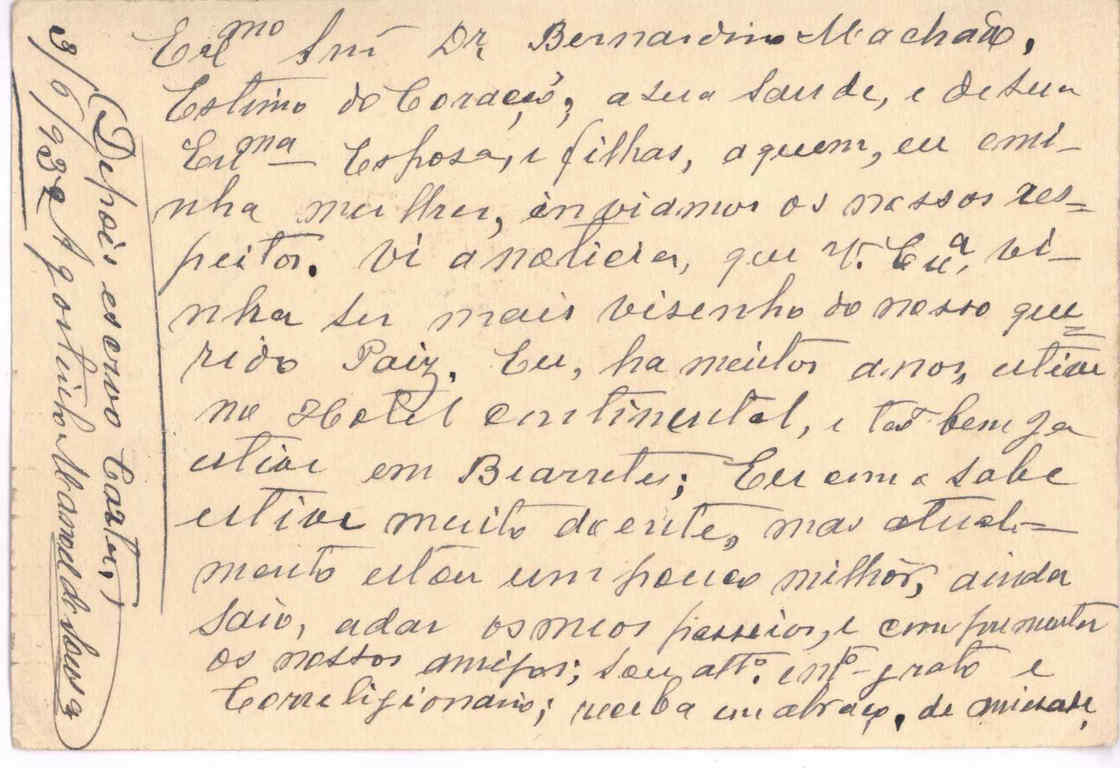 Exmo Snr Dr Bernardino Machado,
Estimo do Coração, a sua saude, e de sua
Exma Esposa, e filhas, a quem, eu e mi-
nha mulher, inviamos os nossos res-
peitos. Vi a noticia, que V. Exa, vi-
nha ser mais visenho do nosso que-
rido Paiz. Eu, ha muitos annos, estive
no Hotel Continental, e tão bem ja
estive em Biarrits; Eu como sabe
estive muito doente, mas atual-
mente estou um pouco milhór, ainda
saio, a dar os meos passeios, e comprimentar
os nossos amigos; Seu atto. e mto grato e
Correligionario; receba um abraço, de amisade,
3/6/932 Agostinho Manoel de Sousa
(Depois escrevo Carta,)